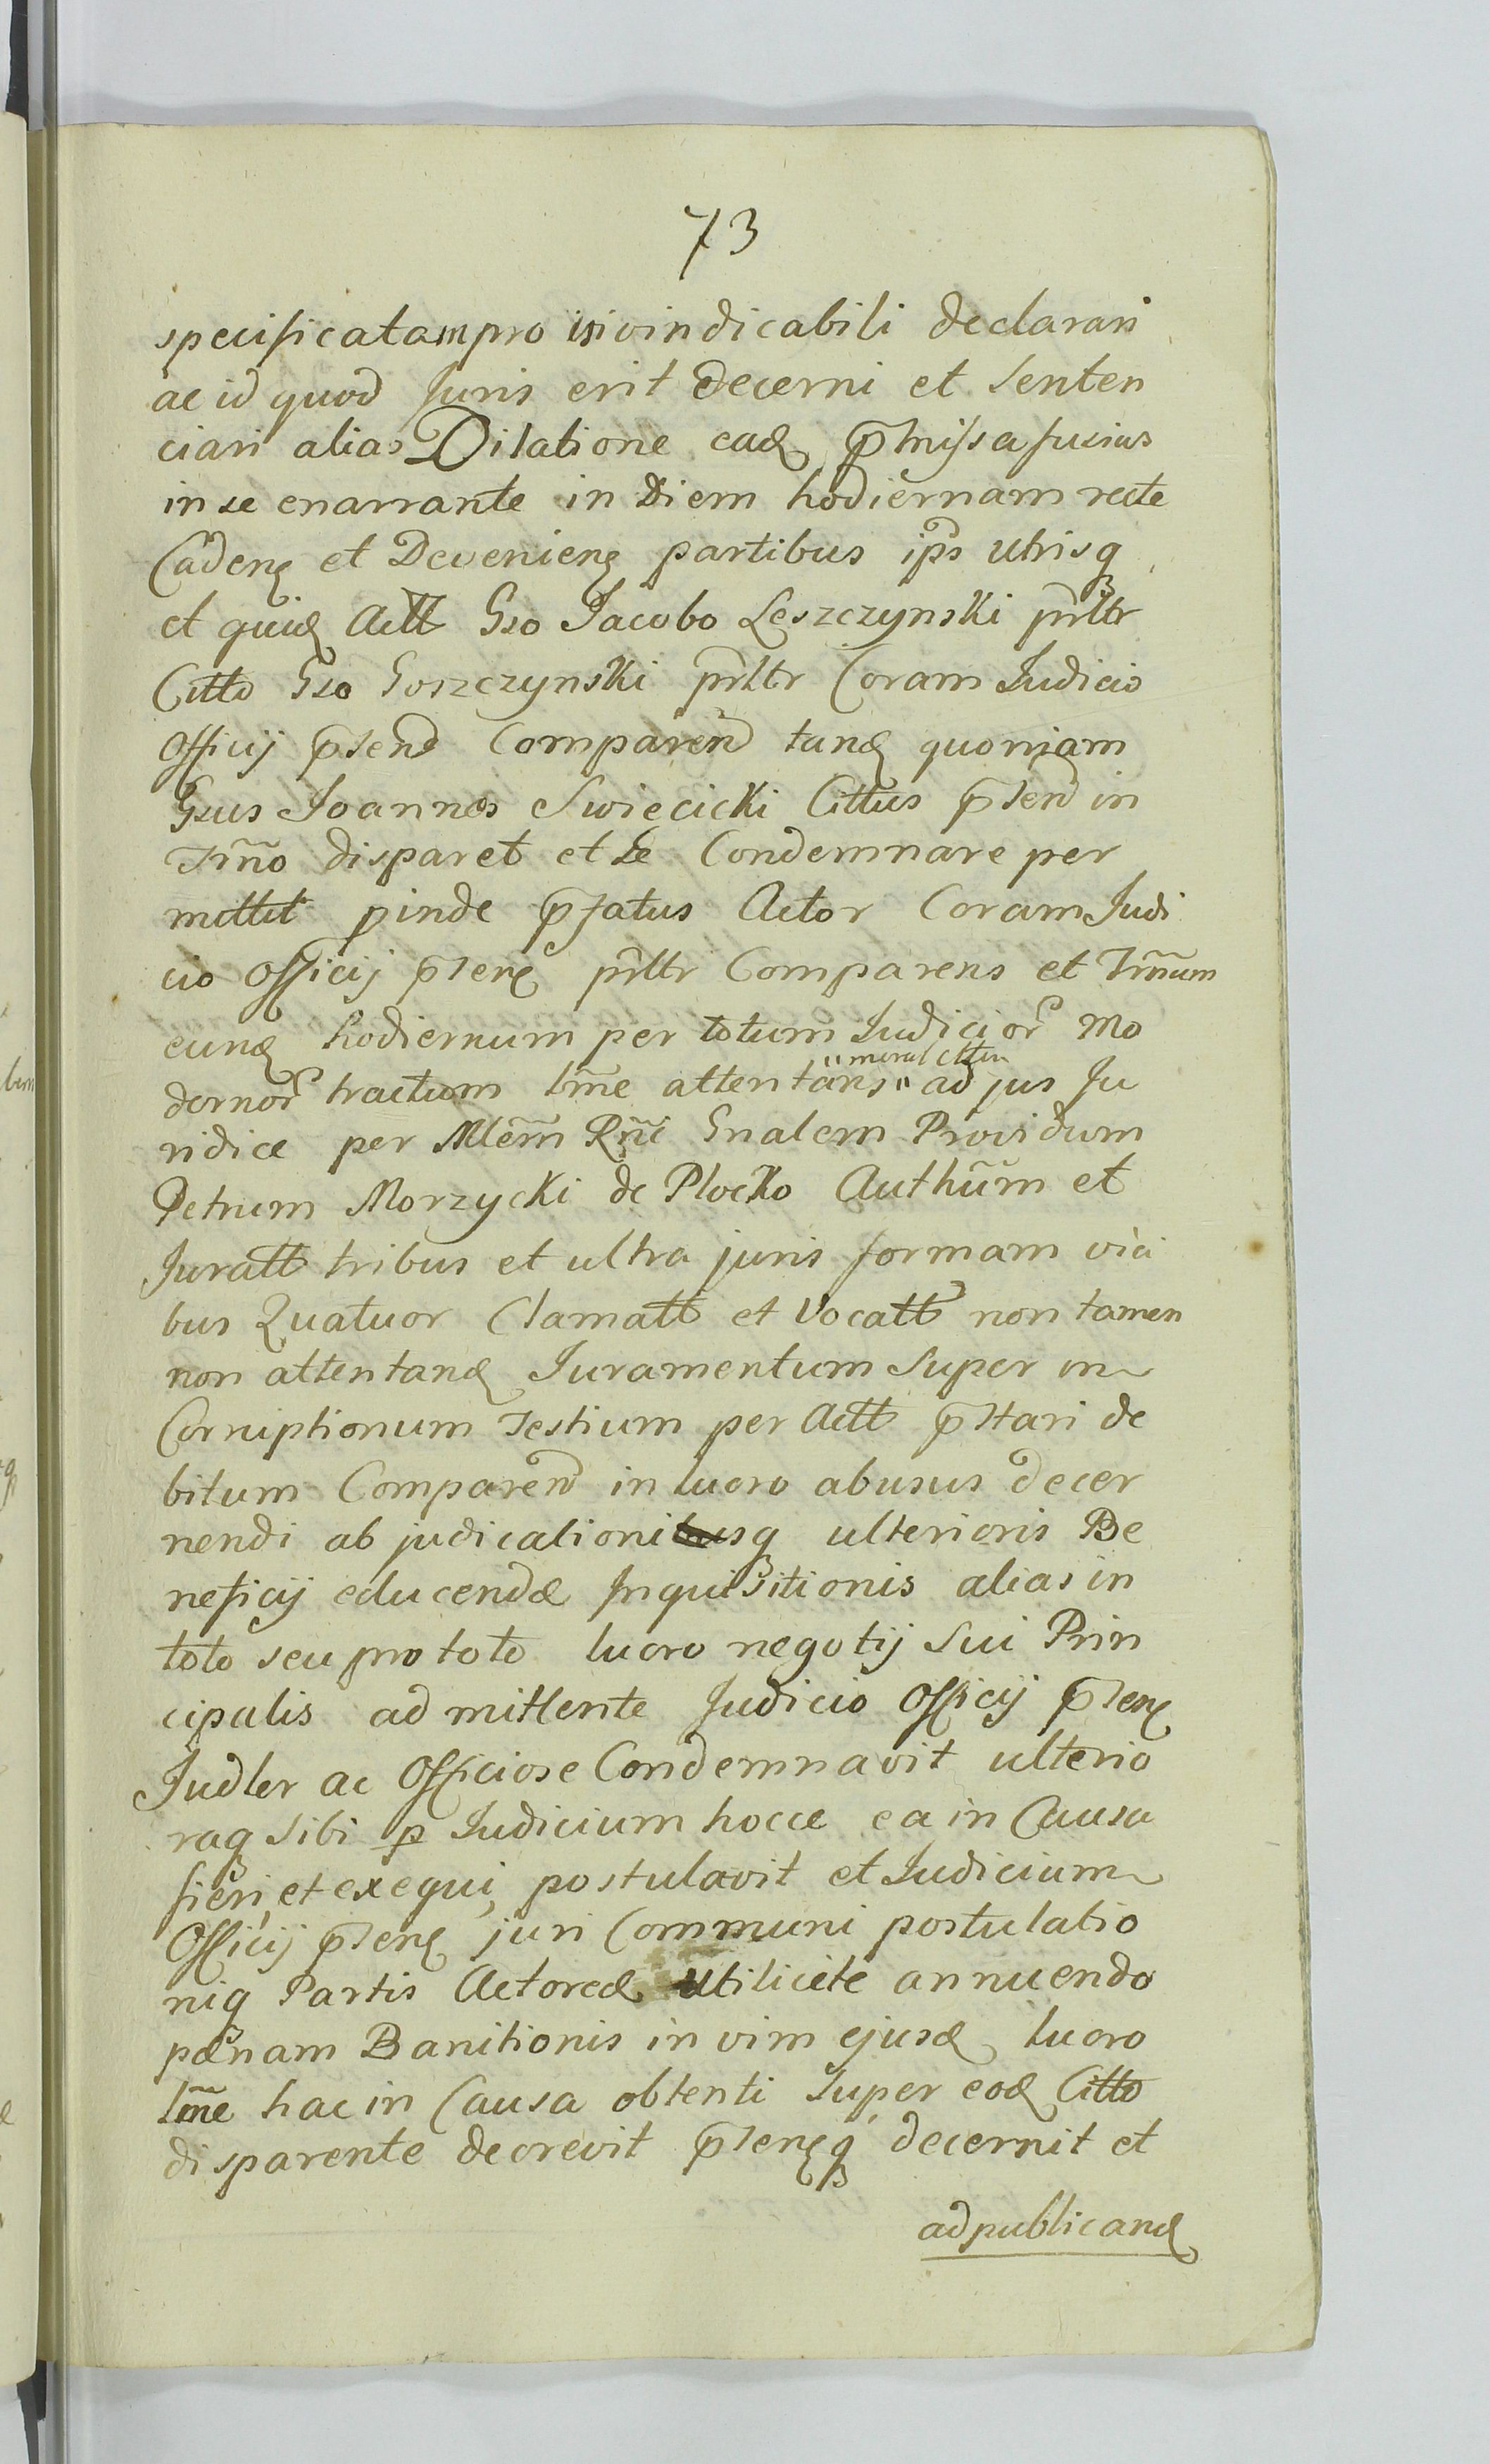 73
specificatam pro invindicabili declarari
ac id quod Juris erit decerni et senten
ciari alias Dilatione eadē p̄missa fusius
in se enarrante in Diem hodiernam recte
Cadenē et Devenienē partibus ip̄s utrisq
et quidē Actt Gso Jacobo Leszczynski pr̄ltr
Citto Gso Goszczynski pr̄ltr Coram Judicio
Officij p̄send Comparend tandē quoniam
Gsus Joannes Swiecicki Cittus p̄send in
Trñno disparet et se Condemnare per
mittit pinde p̄fatus Actor Coram Judi
cio Officij p̄senē pr̄ltr Comparens et Trm̄num
eundē hodiernum per totum Judicior̄ Mo
dernor̄ tractum lm̄e attentans ad jus Ju
ridice per Mlem̄ Rñi Gnalem Providum
Petrum Morzycki de Plocko Authum̄ et
Juratt tribus et ultra juris formam vici
bus Quatuor Clamatt et Vocatt non tamen
non attentandē Juramentum super in
Corruptionum Testium per Actt p̄stari de
bitum Comparend in lucro abusus decer
nendi ab judicationisq ulterioris Be
neficij educendæ Inquisitionis alias in
toto seu pro toto lucro negotij sui Prin
cipalis admittente Judicio Officij p̄senē
Judler ac Officiose Condemnavit ulterio
raq sibi p Judicium hocce ea in Causa
fieri, et exequi, postulavit et Judicium
Officij p̄senē juri Communi postulatio
niq Partis Actoreæ utilicite annuendo
pænam Banitionis in vim ejusdē lucro
lm̄e hac in Causa obtenti super eodē Citto
disparente decrevit p̄senēq decernit et
ad publicandē